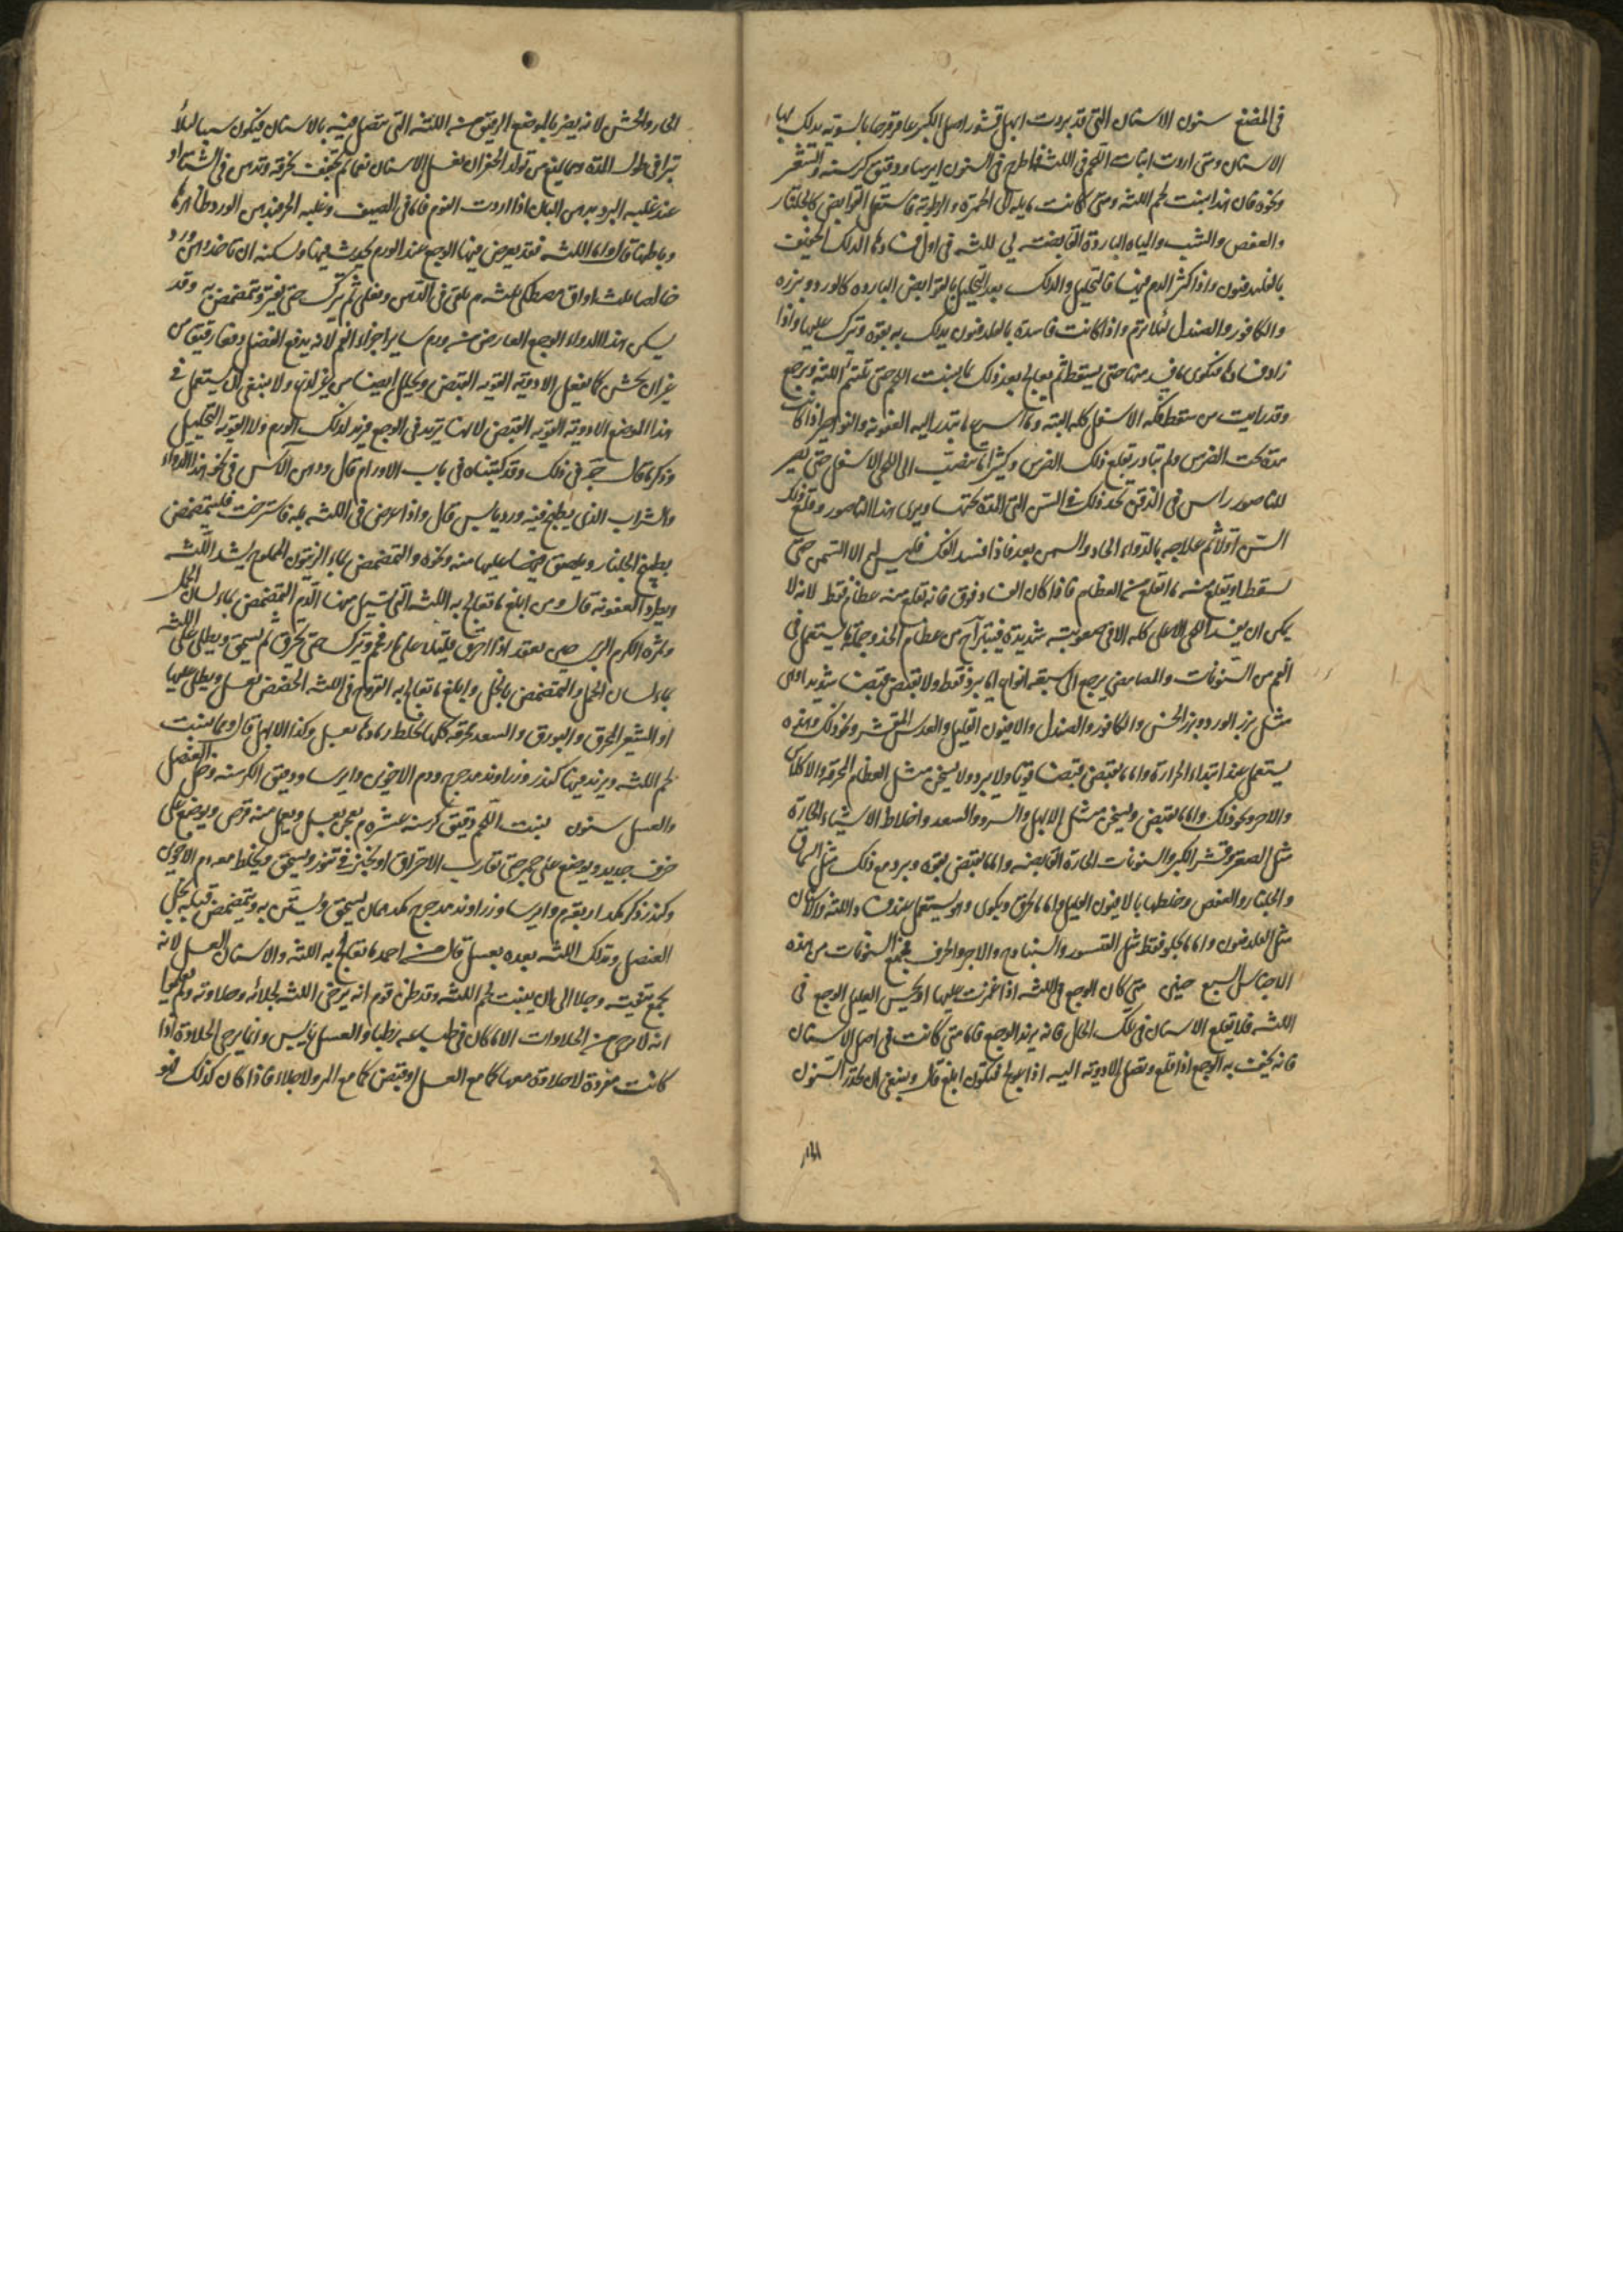 في المضغ سنون الاسنان التي قد بردت ابهل قشور اصل الكبر عاقرقرحا بالسوية يدلك بها
الاسنان ومتى اردت انبات اللحم في اللثة فاطرح في السنون ايرسا ودقيق كرسنه والشعير
ونحوه فان هذا ينبت لحم اللثة ومتى كانت مايلة الى الحمرة والرطوبة فاستعمل القوابض كالجلنار
والعفص والشب والمياه الباردة القابضة لي للثة في اول فسادها الدلك الخفيف
بالفلدفيون واذا كثر الدم فيها فالتحليل والدلك بعد التحليل بالقوابض الباردة كالورد وبزره
والكافور والصندل لئلا ترم واذا كانت فاسدة بالفلدفيون يدلك به بقوة وترك عليها واذا
زاد فسادها فتكوى ما فسد منها حتى يسقط ثم يعالج بعد ذلك بما ينبت اللحم حتى تلتئم اللثة ويرجع
وقد رايت من سقط فكه الاسفل كله البتة وما اسرع ما يتدر اليه العفونة والنواصير اذا كانت
تحت الضرس ولم تبادر بقلع ذلك الضرس وكثيرا ما ينصب الى اللحى الاسفل حتى يصير
للناصور راس في الذقن تحد ذلك في السن التي المدة تحتها ويرى هذا الناصور وقلع تلك
السن اولا ثم علاجه بالدواء الحاد والسمن بعد فاذا فسد الفك فليس له الا السمن حتى
يسقط او يقلع منه ما انقلع من العظام فاذا كان الفساد فوق فانه تقلع منه عظام فقط لانه لا
يمكن ان يفسد اللحى الاعلى كله الا في صعوبة شديدة فيتبرا من عظام الخد وجملة ما يستعمل في
الفم من السنونات والمضامض يرجع الى سبعة انواع اما يبرد فقط ولا يقبض قبضا شديدا
مثل بزر الورد وبزر الخس والكافور والصندل والافيون القليل والعدس المقشر ونحو ذلك وهذه
يستعمل عند ابتداء الحرارة واما ما يقبض قبضا قويا ولا يبرد ولا يسخن مثل العظام المحرقة والاكلاس
والاجر ونحو ذلك واما ما يقبض ويسخن مثل الابهل والسرو والسعد واخلاط الاشياء الحارة
مثل الصعتر وقشر الكبر والسنونات الحارة القابضة واما ما يقبض بقوة ويبرد مع ذلك مثل السماق
والجلنار والعفص وخلطها بالافيون القليل واما ما يحرق ويكوى وهو يستعمل عند فساد اللثة والاسنان
مثل الفلدفيون واما ما يجلو فقط مثل القيسور والسنباذج والاجر والخزف فجميع السنونات من هذه
الاجناس السبع حنين متى كان الوجع في اللثة اذا غمزت عليها او يحس العليل الوجع في
اللثة فلا تقلع الاسنان في تلك الحال فانه يزيد الوجع فاما متى كانت في اصل الاسنان
فانه يخف به الوجع اذا قلع وتصل الادوية اليه اذا عولج فيكون ابلغ قال وينبغي ان يحذر السنون
الحار والخشن لانه يضر بالموضع الرقيق من اللثة التي تتصل فيه بالاسنان فيكون سببا لبلا
تبرا في طول المدة ومما يمنع من تولد الحفر ان تغسل الاسنان نعما ثم تجفف بخرقة وتدهن في الشتاء او
عند غلبة البرد بدهن البان اذا اردت النوم فاما في الصيف وغلبة الحر فبدهن الورد ظاهرها
وباطنها قال واما اللثة فقد يعرض فيها الوجع عند الورم يحدث فيها ويسكنه ان تاخذ دهن ورد
خالصا ثلث اواق مصطكي ثلثة م يلقى في الدهن ويغلى ثم يترك حتى يفتر ويتمضمض به وقد
يسكن هذا الدواء الوجع العارض من ورم ساير اجزاء الفم لانه يدفع الفضل دفعا رفيقا من
غير ان يخشن كما يفعل الادوية القوية القبض ويحلل ايضا من غير لذع ولا ينبغي ان يستعمل في
هذا الموضع الادوية القوية القبض لانها تزيد في الوجع فيزيد لذلك الورم ولا القوية التحليل
وذكر ما قال جو في ذلك وقد كتبناه في باب الاورام قال ودهن الآس في نحو هذا الدواء
والشراب الذي يطبخ فيه ورد يابس قال واذا عرض في اللثة بلة فاسترخت فليتمضمض
بطبيخ الجلنار ويلصق ايضا عليها منه ونحوه والتمضمض بماء الزيتون المملوح يشد اللثة
ويطرد العفونة قال ومن ابلغ ما تعالج به اللثة التي تسيل منها الدم التمضمض بماء لسان الحمل
وثمرة الكرم البري حين يعقد اذا احرق بقلته على نار فحم ويترك حتى يحرق ثم يسحق ويطلى على اللثة
بماء لسان الحمل والتمضمض بالخل وابلغ ما تعالج به القروح في اللثة الحضض بعسل ويطلى عليها
او الشعير المحرق والبورق والسعد محرقة كلها يخلط رمادها بعسل وكذا الابهل قال ومما ينبت
لحم اللثة ويزيد فيها كندر زراوند مدحرج ودم الاخوين وايرسا ودقيق الكرسنه وخل العنصل
والعسل سنون ينبت اللحم دقيق كرسنه عشرة م يعجن بعسل ويعمل منه قرص ويوضع على
خزف جديد ويوضع على جمر حتى تقارب الاحتراق او يخبز في تنور ويسحق ويخلط معه دم الاخوين
وكندر ذكر كمد اربعة م وايرسا وزراوند مدحرج كمد ممان يسحق ويستن به ويتمضمض قبله بخل
العنصل وتدلك اللثة بعده بعسل قال من احمد ما تعالج به اللثة والاسنان العسل لانه
يجمع تنقية وجلا الى ان ينبت لحم اللثة وقد ظن قوم انه يرخى اللثة لجلائه وحلاوته ولم يعلموا
انه لا يرخى من الحلاوات الا ما كان في طباعه رطبا والعسل يابس وانما يرخى الحلاوة اذا
كانت مفردة لا حلاوة معها كما مع العسل او قبض كما مع المر ولا جلاء فاذا كان كذلك فهو